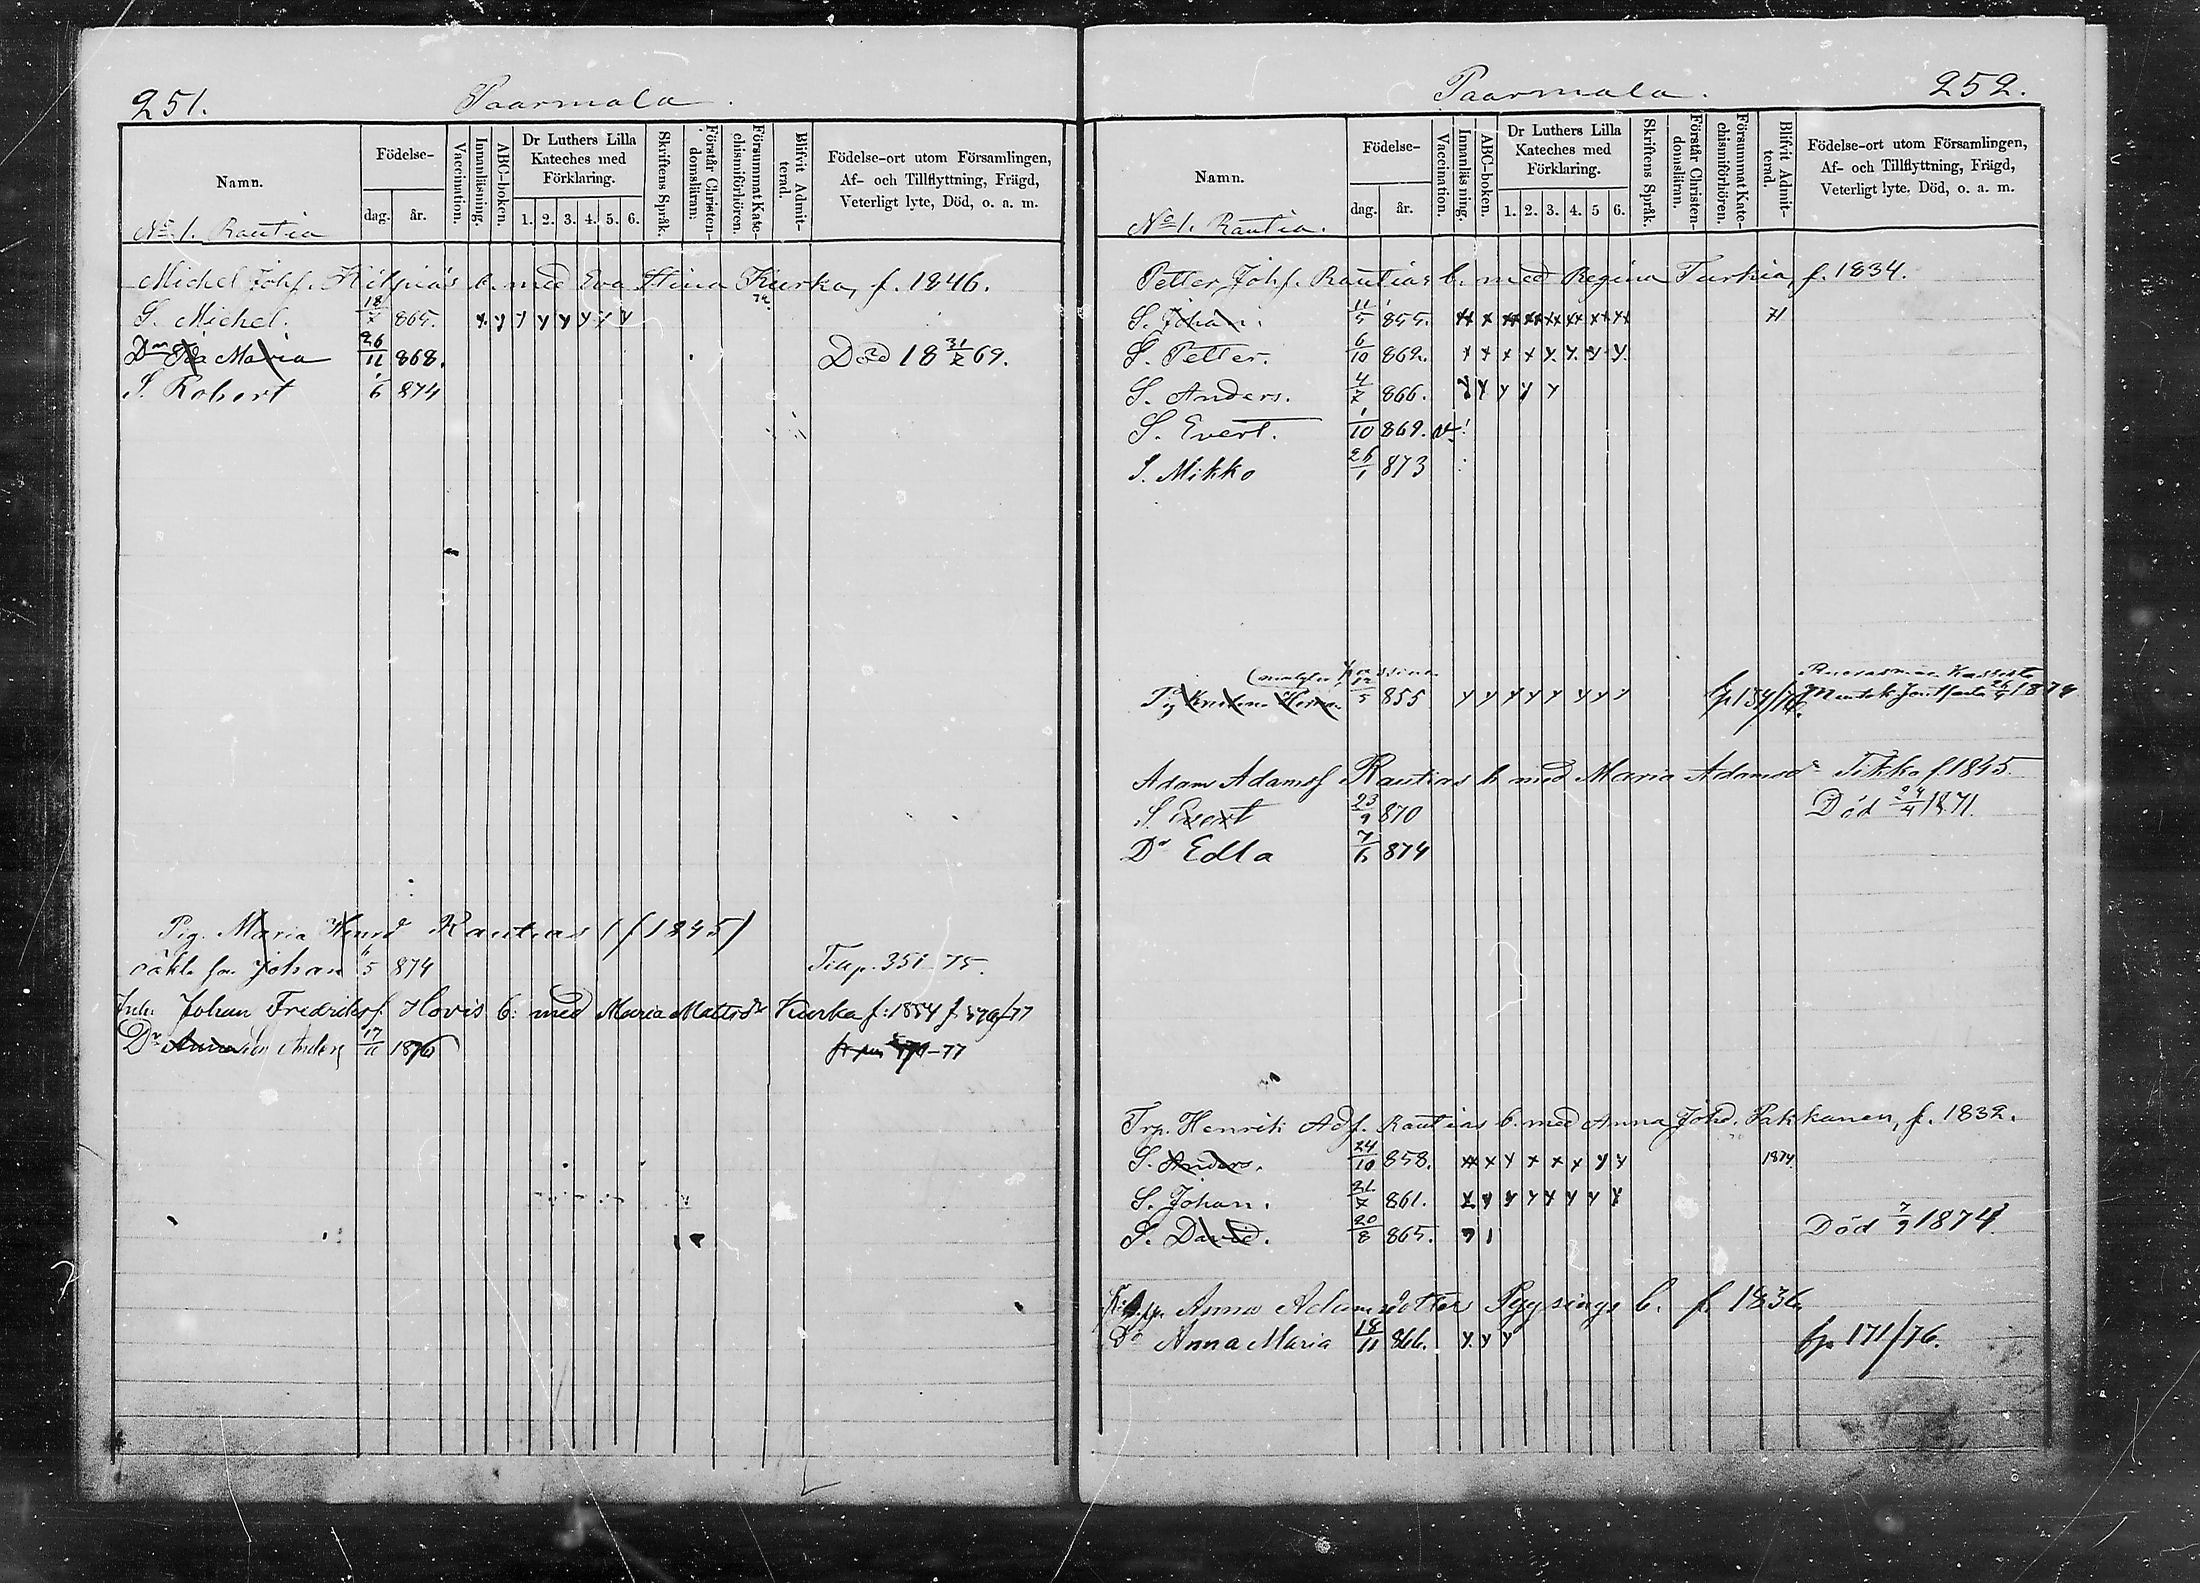 251.
Paarmala.
Namn.
Födelse-
dag.
år.
Vaccination.
Innanläsning.
ABC-boken.
Dr Luthers Lilla
Kateches med
Förklaring.
1. 2. 3. 4. 5. 6.
Skriftens Språk.
Förstår Christen-
domsläran.
Försummat Kate-
chismiförhören.
Blifvit Admit-
terad.
Födelse-ort utom Församlingen,
Af- och Tillflyttning, Frägd,
Veterligt lyte, Död, o. a. m.
No 1. Rautia
Michel Johs. b. med Eva Stina Kurka, f. 1846.
S. Michel. 18/7 865. x y y y y y y y
Dr Ida Maria 26/11 868. Död 18 31/ 69.
S. Robert 1/6 874
Pig. Maria Rautias (f 1845)
oäkt. son Johan 11/5 874 75.
Johan Fredriksf. Hovis b: med Maria Mattsdr Kurka f: 1854
Dr Anders 17/11 1876 77
252.
Paarmala.
Namn.
Födelse-
dag.
år.
Vaccination.
Innanläsning.
ABC-boken.
Dr Luthers Lilla
Kateches med
Förklaring.
1. 2. 3. 4. 5 6.
Skriftens Språk.
Förstår Christen-
domsläran.
Försummat Kate-
chismiförhören.
Blifvit Admit-
terad.
Födelse-ort utom Församlingen,
Af- och Tillflyttning, Frägd,
Veterligt lyte. Död, o. a. m.
No 1. Rautia.
Petter Johs. Rautias b. med Regina Turkia, f. 1834.
S. Johan. 11/5 855. 71
S. Petter. 6/10 862. x x x x y. y. y y.
S. Anders. 4/7 866. y y y y y
S. Evert. 1/10 869. v.
S. Mikko 26/1 873
Pig 12/5 855 y y y y y y y y
Adam Adamsf Rautias b. med Maria Adamsdr Tikka f 1845.
S. Evert 23/9 870 Död 24/4 1871.
Dr Edla 7/6 874
Trp. Henrik Adf. Rautias b. med Anna Johd. Pakkanen, f. 1832.
S. Anders. 24/10 858. 1874
S. Johan. 21/7 861.
S. David. 20/8 865. Död 7/9 1874.
Anna Adamsdotter b. f. 1836.
Dr Anna Maria 18/11 866. y. y y 171/76.